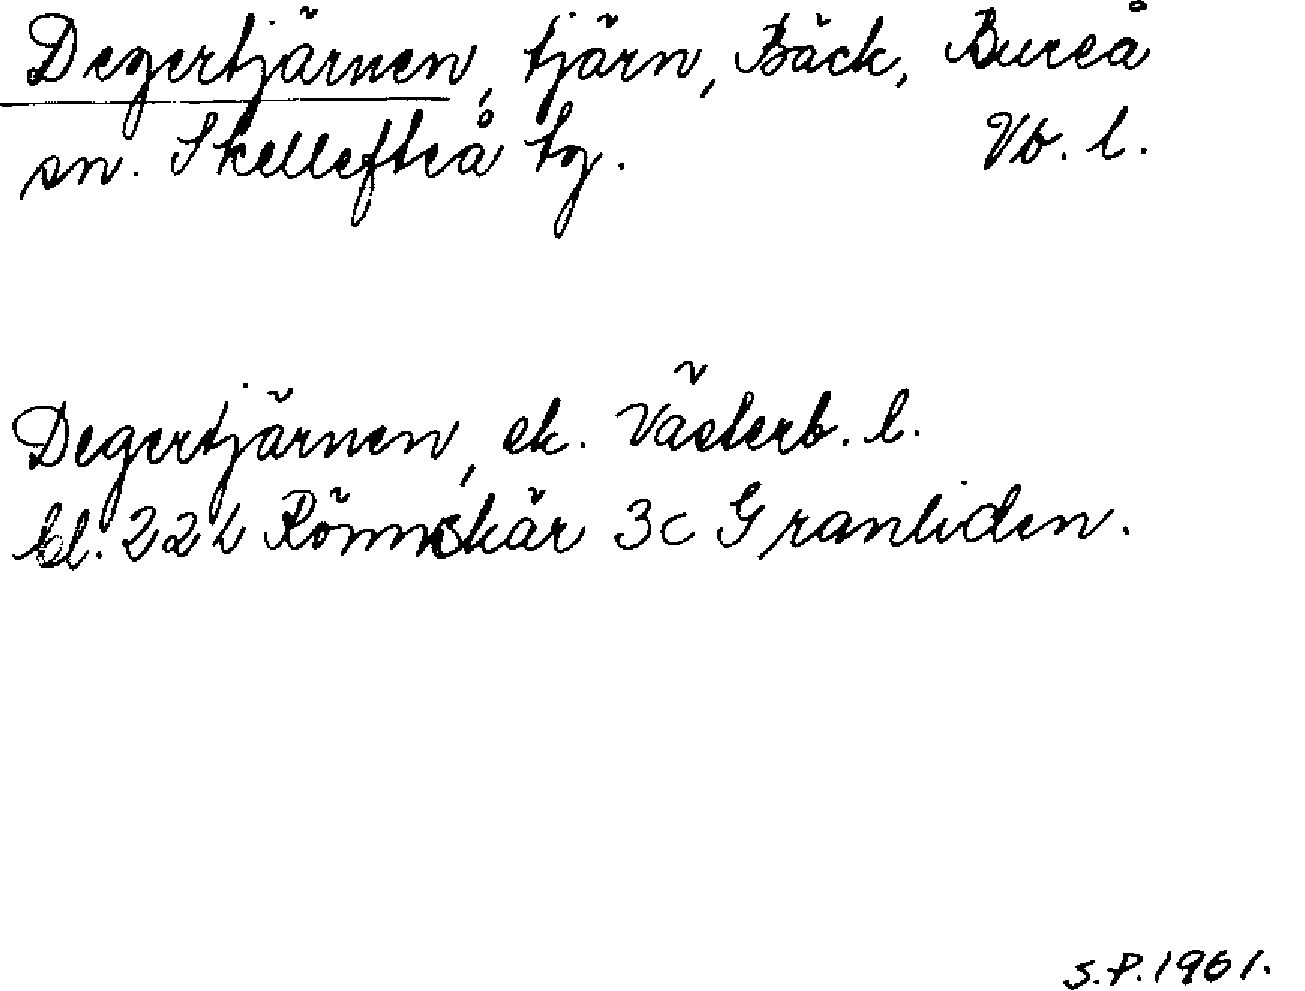 Degertjärnen, tjärn, Bäck, Bureå
sn. Skellefteå tg. Vb. l.
Degertjärnen, ek. Västerb. l.
bl. 22L Rönnskär 3c Granliden.
S.P. 1961.